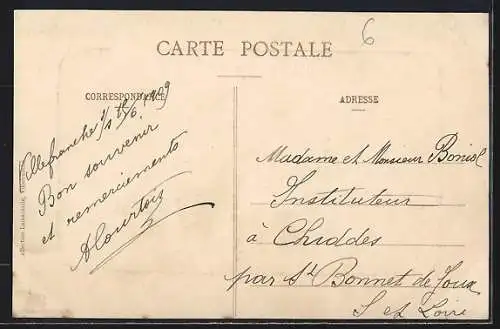 6
CARTE POSTALE
CORRESPONDANCE
Villefranche 1909
Bon souvenir
et remerciements
A Courtois
ADRESSE
Madame et Monsieur Boniol
Instituteur
à Chiddes
par St Bonnet de Joux
S et Loire